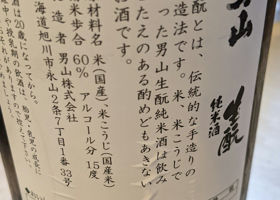 男山
生酛
純米酒
酛とは、伝統的な手造りの
造法です。米、米こうじで
った男山生酛純米酒は飲み
たえのある酌めどもあきない
酒です。
材料名 米(国産)、米こうじ(国産米)
米歩合 60% アルコール分 15度
造者 男山株式会社
海道旭川市永山2条7丁目1番33号
は20歳になってから。